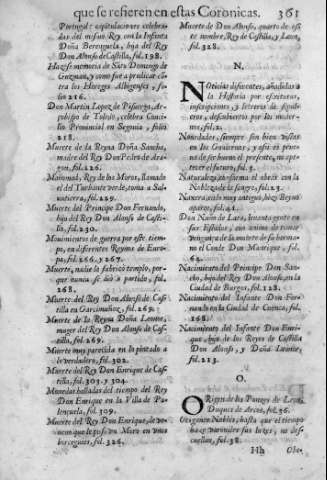 que se refieren en estas Coronicas. 361
Portugal: capitulaciones celebra-
das del mismo Rey con la Infanta
Doña Berenguela, hija del Rey
Don Alonso de Castilla, fol. 198.
Hazese memoria de Santo Domingo de
Guzman, y como fue a predicar cō-
tra los Hereges Albigenses, fo-
lio 216.
Don Martin Lopez de Pisuerga, Ar-
çobispo de Toledo, celebra Conci-
lio Provincial en Segovia, folio
218.
Muerte de la Reyna Doña Sancha,
madre del Rey Don Pedro de Ara-
gon, fol. 226.
Maomad, Rey de los Moros, llamado
el del Turbante verde, toma a Sal-
vatierra, fol. 229.
Muerte del Principe Don Fernando,
hijo del Rey Don Alonso de Casti-
lla, fol. 230.
Movimientos de guerra por este tiempo,
en diferentes Reynos de Euro-
pa, fol. 266. y 267.
Muerte, no ay la fabricò tiempo, por-
que nunca se diò a partido, fol.
268.
Muerte del Rey Don Alonso de Cas-
tilla en Garcimuñoz, fol. 269.
Muerte de la Reyna Doña Leonor,
muger del Rey Don Alonso de Cas-
tilla, fol. 269.
Muerte muy parecida en lo pintado a
la verdadera, fol. 302.
Muerte del Rey Don Enrique de Cas-
tilla, fol. 303. y 304.
Monedas halladas del tiempo del Rey
Don Enrique en la Villa de Pa-
lençuela, fol. 309.
Muerte de Don Enrique, fol. 326.
Muerte de Don Alonso, quarto de es-
te nombre, Rey de Castilla, y Leon,
fol. 328.
N.
Noticias diferentes, añadidas a
la Historia por escrituras,
inscripciones, y letreros de sepul-
cros, descubierto por los mo-
dernos, fol. 2.
Novedades, siempre son bien vistas
en los Goviernos, y assi es pension
de ser bueno el presente, no ape-
tecer el futuro, fol. 3.
Naturaleza conforma el aliento con la
Nobleza de la sangre, fol. 23.
Navarra, reyno muy antiguo, hizo Reyno
aparte, fol. 41.
Don Nuño de Lara, levanta gente en
sus Estados, con animo de tomar
vengança de la muerte de su herma-
no el Conde Don Manrique, fol.
62.
Nacimiento del Principe Don San-
cho, hijo del Rey Don Alonso, en la
Ciudad de Burgos, fol. 128.
Nacimiento del Infante Don Fer-
nando en la Ciudad de Cuenca, fol.
168.
Nacimiento del Infante Don Enri-
que, hijo de los Reyes de Castilla
Don Alonso, y Doña Leonor,
fol. 213.
O.
Origen de los Ponces de Leon,
Duques de Arcos, fol. 36.
Origenes Nobles, hasta que el tiempo
fol. 38.
Hh Obe-